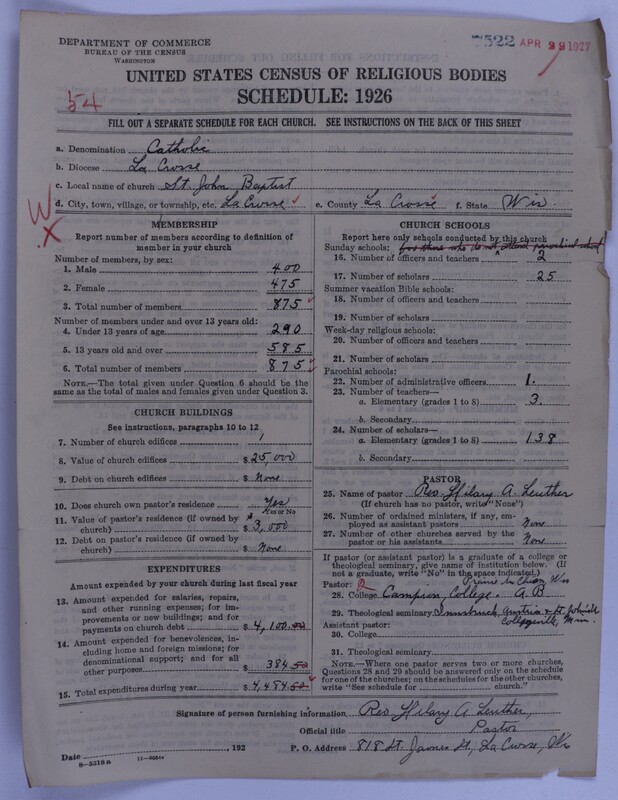 DEPARTMENT OF COMMERCE
BUREAU OF THE CENSUS
WASHINGTON
7522 APR 29 1927
UNITED STATES CENSUS OF RELIGIOUS BODIES
SCHEDULE: 1926
54
FILL OUT A SEPARATE SCHEDULE FOR EACH CHURCH. SEE INSTRUCTIONS ON THE BACK OF THIS SHEET
a. Denomination Catholic
b. Diocese La Crosse
c. Local name of church St. John Baptist
d. City, town, village, or township, etc. La Crosse e. County La Crosse f. State Wis
W
X
MEMBERSHIP
Report number of members according to definition of
member in your church
Number of members, by sex:
1. Male 400
2. Female 475
3. Total number of members 875
Number of members under and over 13 years old:
4. Under 13 years of age 290
5. 13 years old and over 585
6. Total number of members 875
NOTE.—The total given under Question 6 should be
the same as the total of males and females given under Question 3.
CHURCH BUILDINGS
See instructions, paragraphs 10 to 12
7. Number of church edifices 1
8. Value of church edifices $25,000
9. Debt on church edifices $ None
10. Does church own pastor's residence Yes
Yes or No
11. Value of pastor's residence (if owned by
church) $ 3,000
12. Debt on pastor's residence (if owned by
church) $ None
EXPENDITURES
Amount expended by your church during last fiscal year
13. Amount expended for salaries, repairs,
and other running expenses; for im-
provements or new buildings; and for
payments on church debt $ 4,100.00
14. Amount expended for benevolences, in-
cluding home and foreign missions; for
denominational support; and for all
other purposes $ 384.50
15. Total expenditures during year $ 4,484.50
CHURCH SCHOOLS
Report here only schools conducted by this church
Sunday schools: for those who do not attend parochial school
16. Number of officers and teachers 2
17. Number of scholars 25
Summer vacation Bible schools:
18. Number of officers and teachers
19. Number of scholars
Week-day religious schools:
20. Number of officers and teachers
21. Number of scholars
Parochial schools:
22. Number of administrative officers 1.
23. Number of teachers—
a. Elementary (grades 1 to 8) 3.
b. Secondary
24. Number of scholars—
a. Elementary (grades 1 to 8) 138
b. Secondary
PASTOR
25. Name of pastor Rev. Hilary A. Leuther
(If church has no pastor, write "None")
26. Number of ordained ministers, if any, em-
ployed as assistant pastors None
27. Number of other churches served by the
pastor or his assistants None
If pastor (or assistant pastor) is a graduate of a college or
theological seminary, give name of institution below. (If
not a graduate, write "No" in the space indicated.)
Pastor: 2 Prairie du Chien, Wis
28. College Campion College. A.B
29. Theological seminary Innsbruck, Austria & St. John's
Assistant pastor: Collegeville, Minn.
30. College
31. Theological seminary
NOTE.—Where one pastor serves two or more churches,
Questions 28 and 29 should be answered only on the schedule
for one of the churches; on the schedules for the other churches,
write "See schedule for church."
Signature of person furnishing information Rev Hilary A Leuther,
Official title Pastor
Date , 192 P. O. Address 818 St. James St, La Crosse, Wis
8-5318a